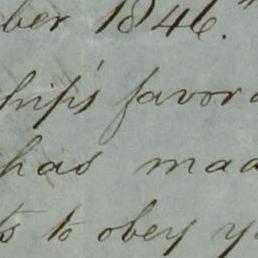 ber 1846."
ship's favor
has mad
ts to obey y